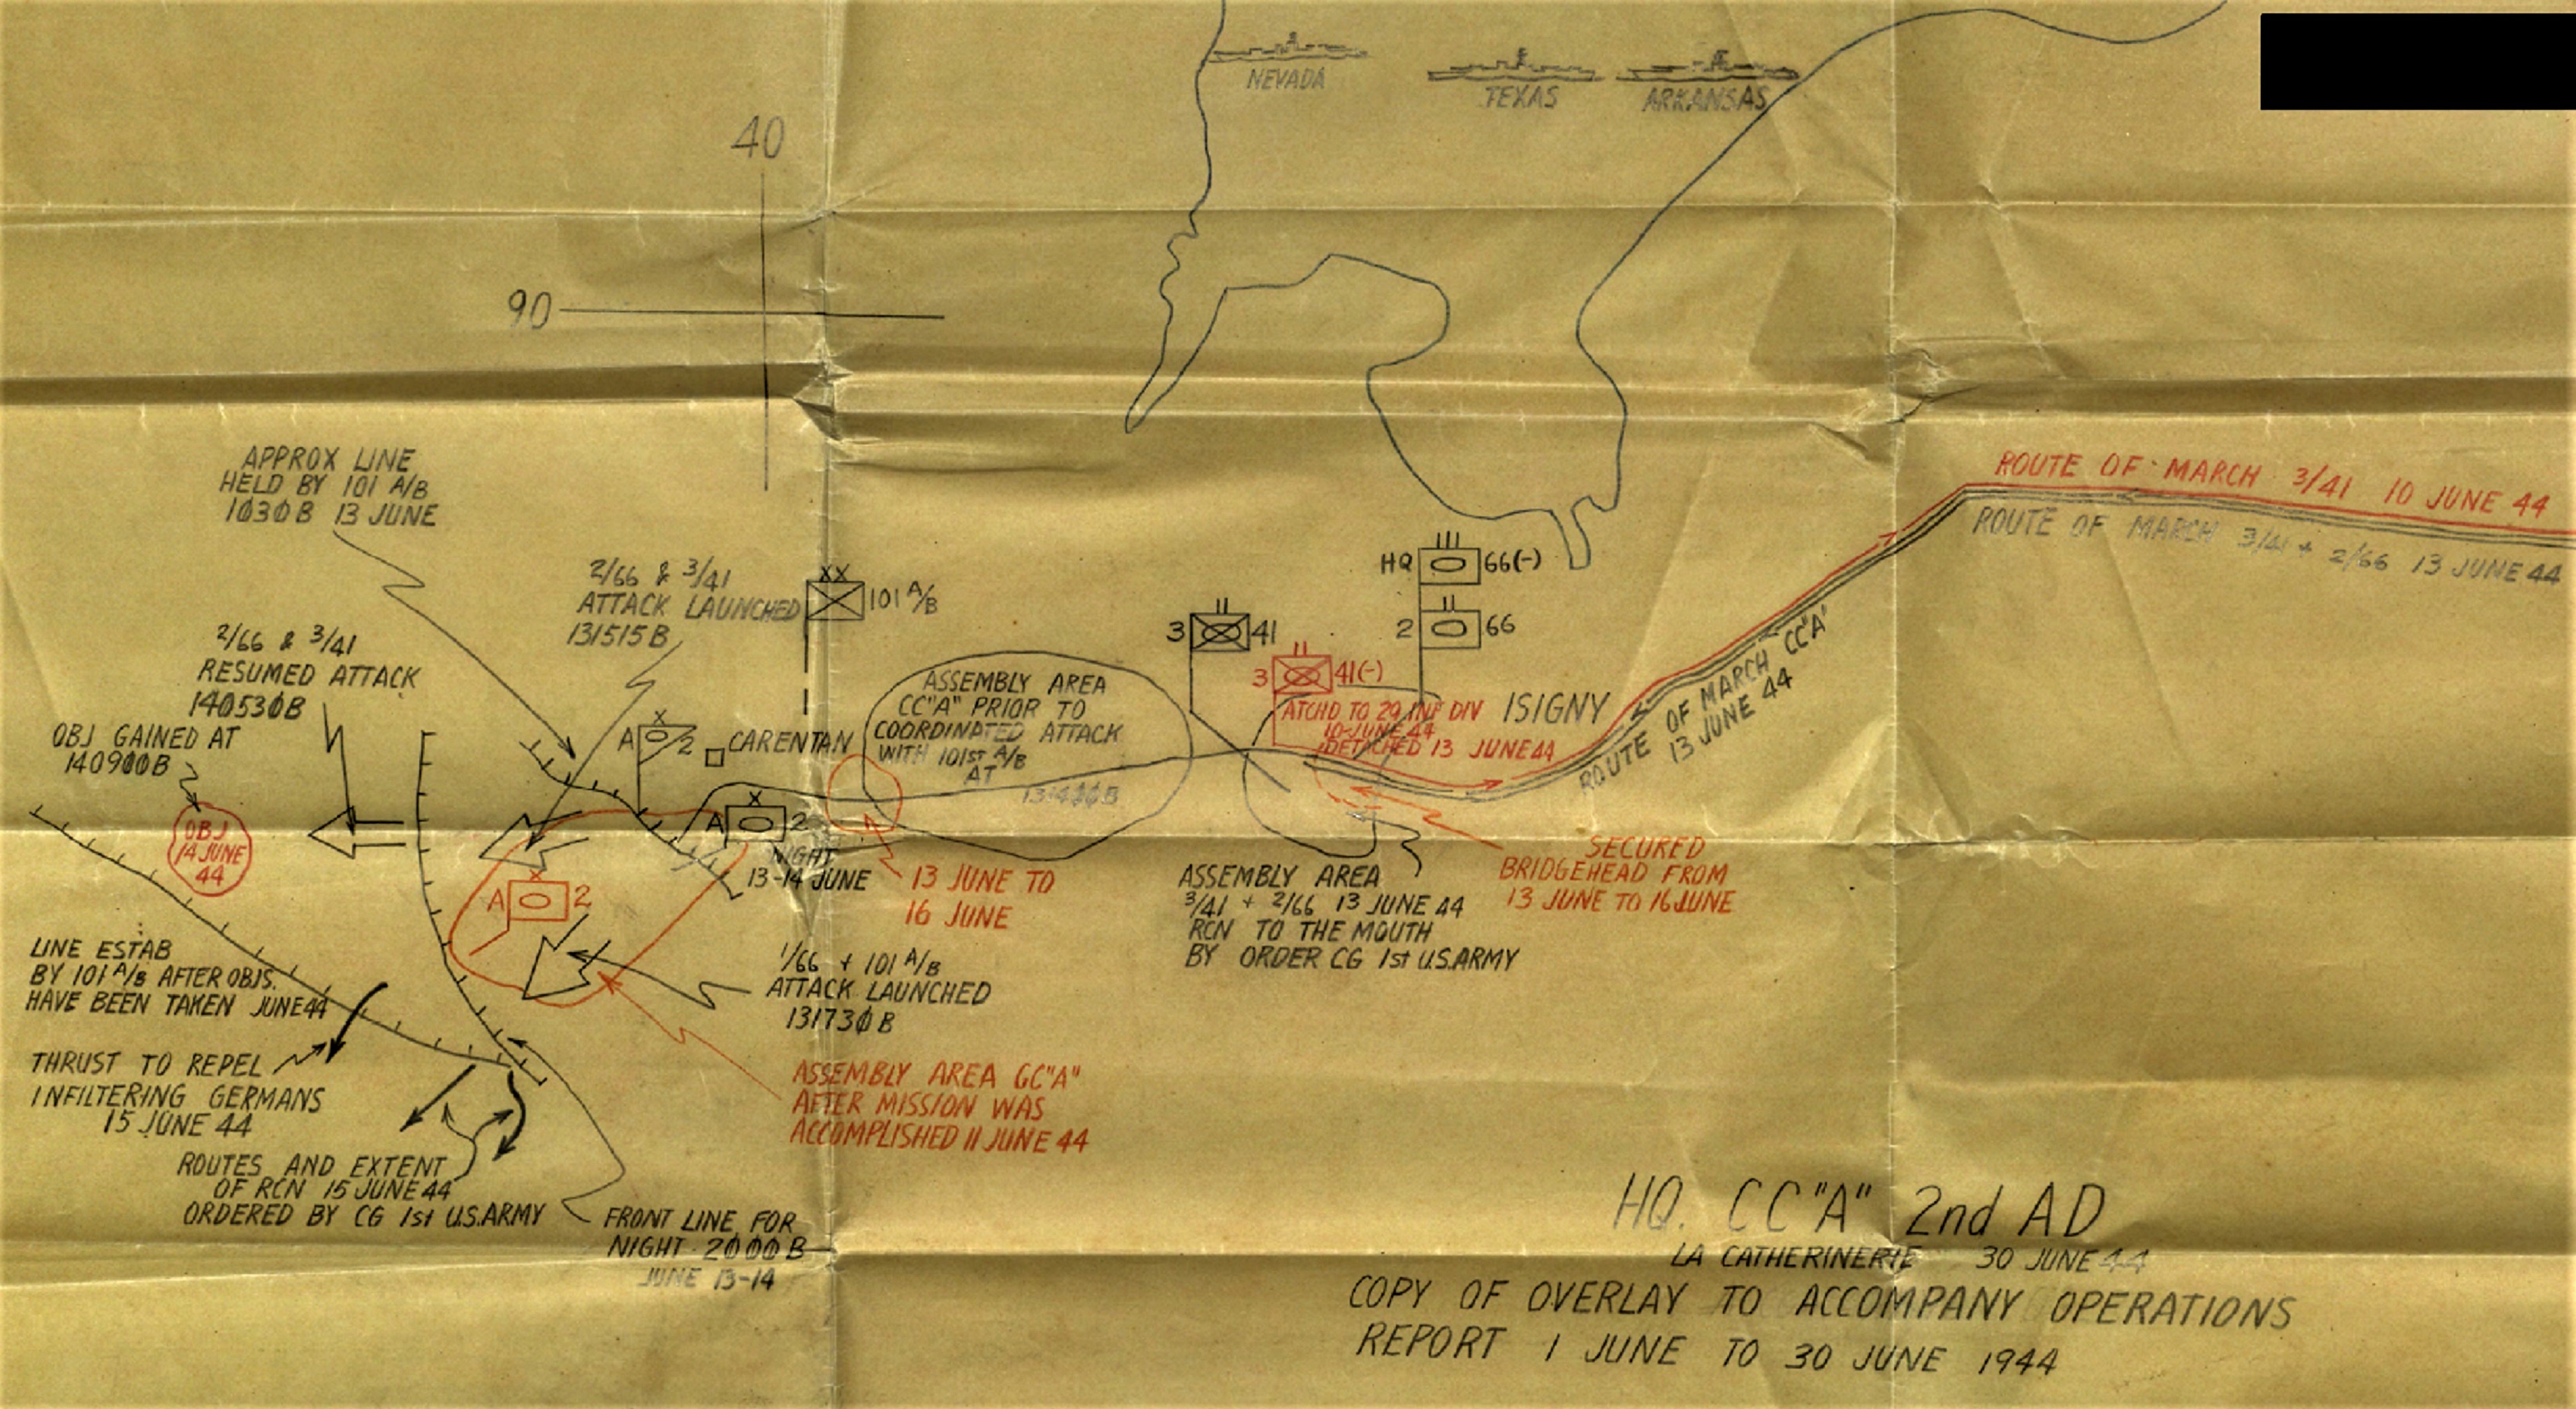 NEVADA
TEXAS
ARKANSAS
40
90
APPROX LINE
HELD BY 101 A/B
1030B 13 JUNE
2/66 & 3/41
ATTACK LAUNCHED
131515B
XX
101 A/B
2/66 & 3/41
RESUMED ATTACK
140530B
OBJ GAINED AT
140900B
OBJ
14 JUNE
44
A 2
CARENTAN
ASSEMBLY AREA
CC"A" PRIOR TO
COORDINATED ATTACK
WITH 101st A/B
AT
131400B
3 41
HQ 66(-)
2 66
3 41(-)
ATCHD TO 29 INF DIV
10-JUNE 44
DETACHED 13 JUNE 44
ISIGNY
ROUTE OF MARCH 3/41 10 JUNE 44
ROUTE OF MARCH 3/41 + 2/66 13 JUNE 44
ROUTE OF MARCH CC"A"
13 JUNE 44
X
A 2
NIGHT
13-14 JUNE
13 JUNE TO
16 JUNE
X
A 2
ASSEMBLY AREA
3/41 + 2/66 13 JUNE 44
RCN TO THE MOUTH
BY ORDER CG 1st U.S.ARMY
SECURED
BRIDGEHEAD FROM
13 JUNE TO 16 JUNE
LINE ESTAB
BY 101 A/B AFTER OBJS.
HAVE BEEN TAKEN JUNE 44
1/66 + 101 A/B
ATTACK LAUNCHED
131730B
THRUST TO REPEL
INFILTERING GERMANS
15 JUNE 44
ASSEMBLY AREA CC"A"
AFTER MISSION WAS
ACCOMPLISHED 11 JUNE 44
ROUTES AND EXTENT
OF RCN 15 JUNE 44
ORDERED BY CG 1st U.S.ARMY
FRONT LINE FOR
NIGHT 2000B
JUNE 13-14
HQ. CC"A" 2nd AD
LA CATHERINERIE 30 JUNE 44
COPY OF OVERLAY TO ACCOMPANY OPERATIONS
REPORT 1 JUNE TO 30 JUNE 1944